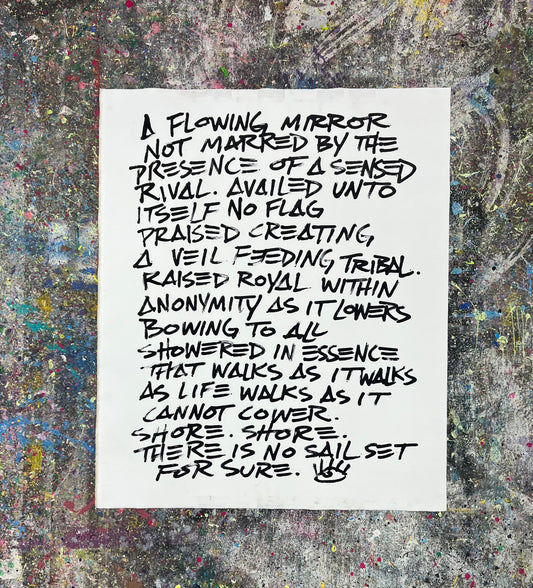 A FLOWING MIRROR
NOT MARRED BY THE
PRESENCE OF A SENSED
RIVAL. AVAILED UNTO
ITSELF NO FLAG
PRAISED CREATING
A VEIL FEEDING TRIBAL.
RAISED ROYAL WITHIN
ANONYMITY AS IT LOWERS
BOWING TO ALL
SHOWERED IN ESSENCE
THAT WALKS AS IT WALKS
AS LIFE WALKS AS IT
CANNOT COWER.
SHORE. SHORE.
THERE IS NO SAIL SET
FOR SURE.